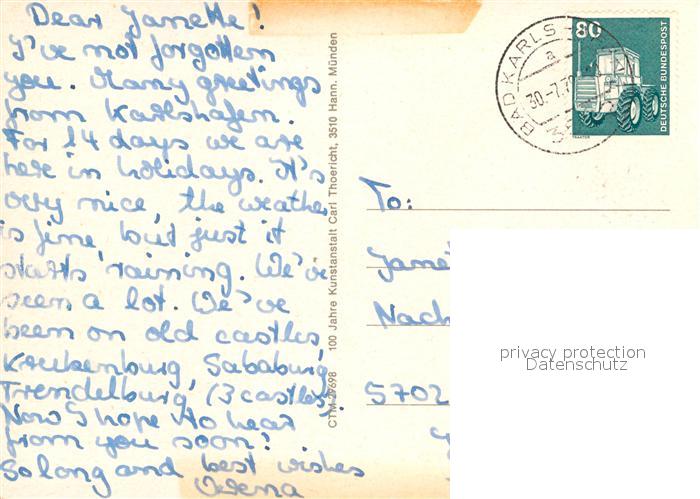 Dear Janette!
I've not forgotten
you. Many greetings
from Karlshafen.
For 14 days we are
here in holidays. It's
very nice, the weather
is fine, but just it
starts raining. We've
seen a lot. We've
been on old castles
Krukenburg, Sababurg,
Trendelburg, (3 castles).
Now I hope to hear
from you soon!
So long and best wishes
Verena
CTM 29698 100 Jahre Kunstanstalt Carl Thoericht, 3510 Hann. Münden
BAD KARLS
a
30.-7.7
80
DEUTSCHE BUNDESPOST
TRAKTOR
To:
Jane
Nach
5702
privacy protection
Datenschutz